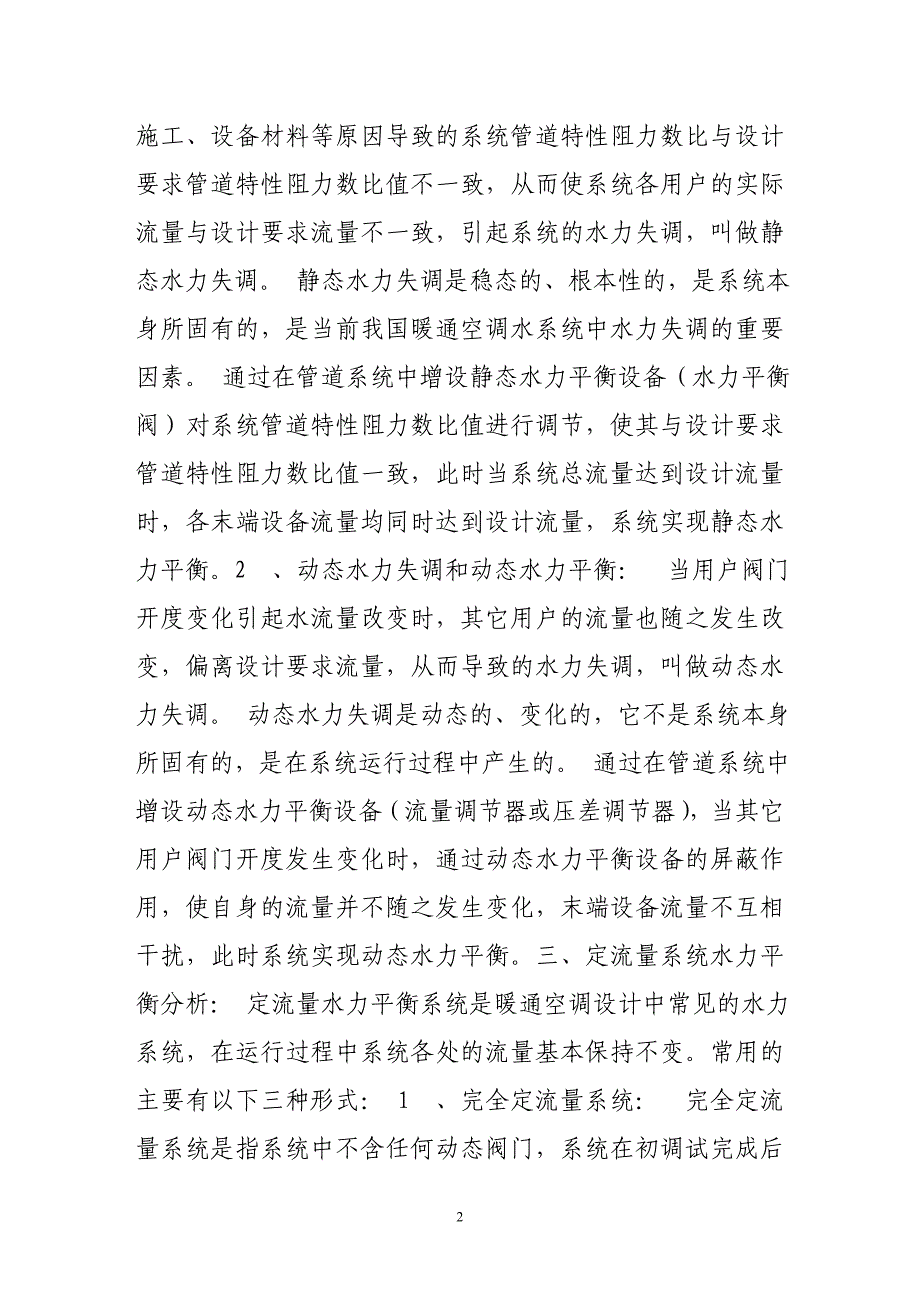 施工、设备材料等原因导致的系统管道特性阻力数比与设计
要求管道特性阻力数比值不一致，从而使系统各用户的实际
流量与设计要求流量不一致，引起系统的水力失调，叫做静
态水力失调。 静态水力失调是稳态的、根本性的，是系统本
身所固有的，是当前我国暖通空调水系统中水力失调的重要
因素。 通过在管道系统中增设静态水力平衡设备（水力平衡
阀）对系统管道特性阻力数比值进行调节，使其与设计要求
管道特性阻力数比值一致，此时当系统总流量达到设计流量
时，各末端设备流量均同时达到设计流量，系统实现静态水
力平衡。2 、动态水力失调和动态水力平衡： 当用户阀门
开度变化引起水流量改变时，其它用户的流量也随之发生改
变，偏离设计要求流量，从而导致的水力失调，叫做动态水
力失调。 动态水力失调是动态的、变化的，它不是系统本身
所固有的，是在系统运行过程中产生的。 通过在管道系统中
增设动态水力平衡设备（流量调节器或压差调节器），当其它
用户阀门开度发生变化时，通过动态水力平衡设备的屏蔽作
用，使自身的流量并不随之发生变化，末端设备流量不互相
干扰，此时系统实现动态水力平衡。三、定流量系统水力平
衡分析： 定流量水力平衡系统是暖通空调设计中常见的水力
系统，在运行过程中系统各处的流量基本保持不变。常用的
主要有以下三种形式： 1 、完全定流量系统： 完全定流
量系统是指系统中不含任何动态阀门，系统在初调试完成后
2